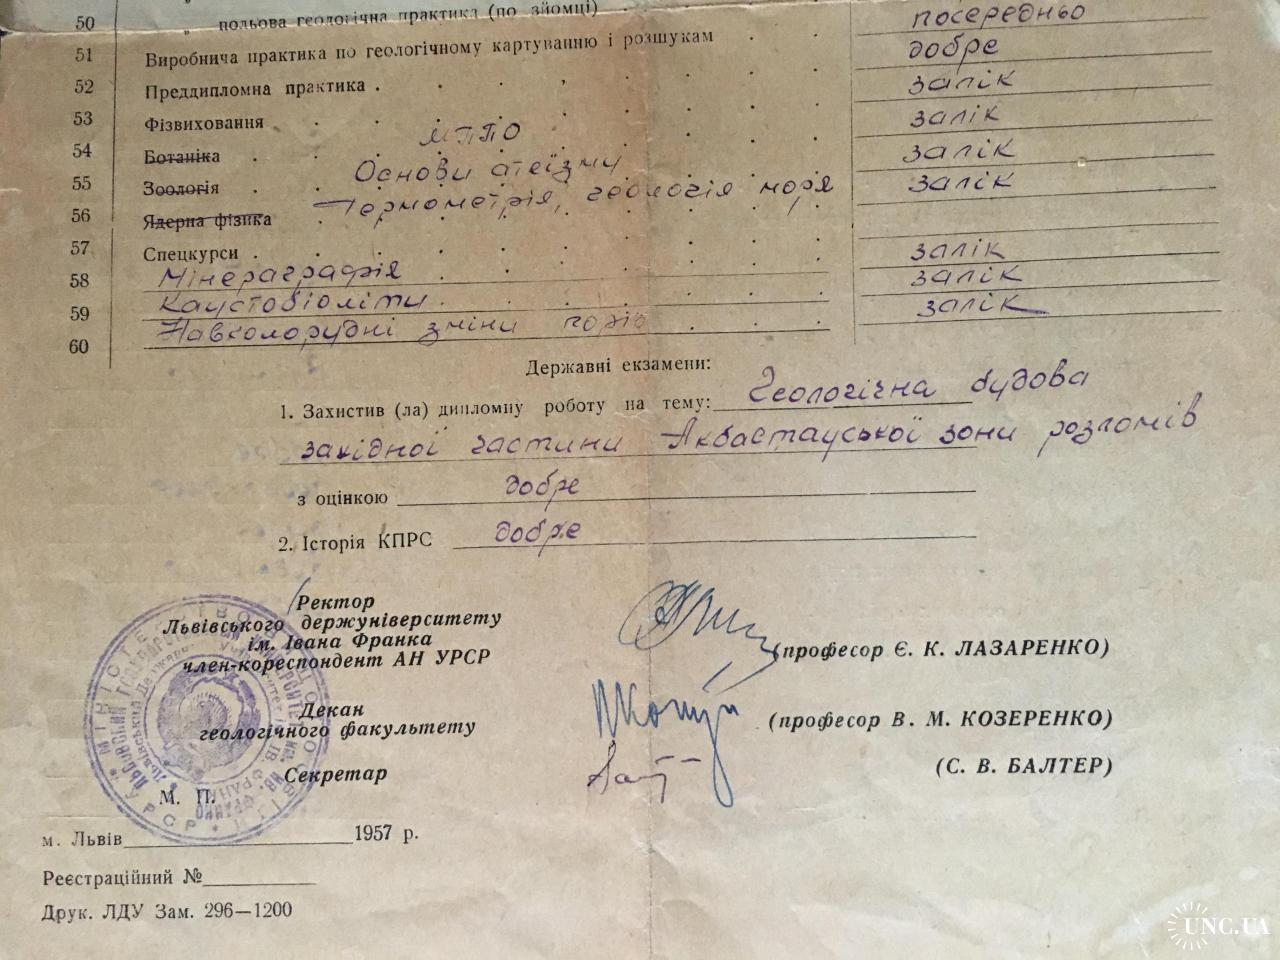 50 „ польова геологічна практика (по зйомці) . посередньо
51 Виробнича практика по геологічному картуванню і розшукам . . добре
52 Преддипломна практика . . . . . . . . залік
53 Фізвиховання . . . . . . . . залік
54 Ботаніка . МППО . . залік
55 Зоологія . Основи атеїзму . . залік
56 Ядерна фізика Термометрія, геологія моря
57 Спецкурси . . . . . . . . залік
58 Мінераграфія . . . . . . . залік
59 Каустобіоліти . . . . . . . залік
60 Навколорудні зміни порід . . .
Державні екзамени:
1. Захистив (ла) дипломну роботу на тему: Геологічна будова
західної частини Акбастауської зони розломів
з оцінкою добре
2. Історія КПРС добре
Ректор
Львівського держуніверситету
ім. Івана Франка
член-кореспондент АН УРСР
(професор Є. К. ЛАЗАРЕНКО)
Декан
геологічного факультету
(професор В. М. КОЗЕРЕНКО)
Секретар
(С. В. БАЛТЕР)
М. П.
м. Львів 1957 р.
Реєстраційний №
Друк. ЛДУ Зам. 296—1200
UNC.UA